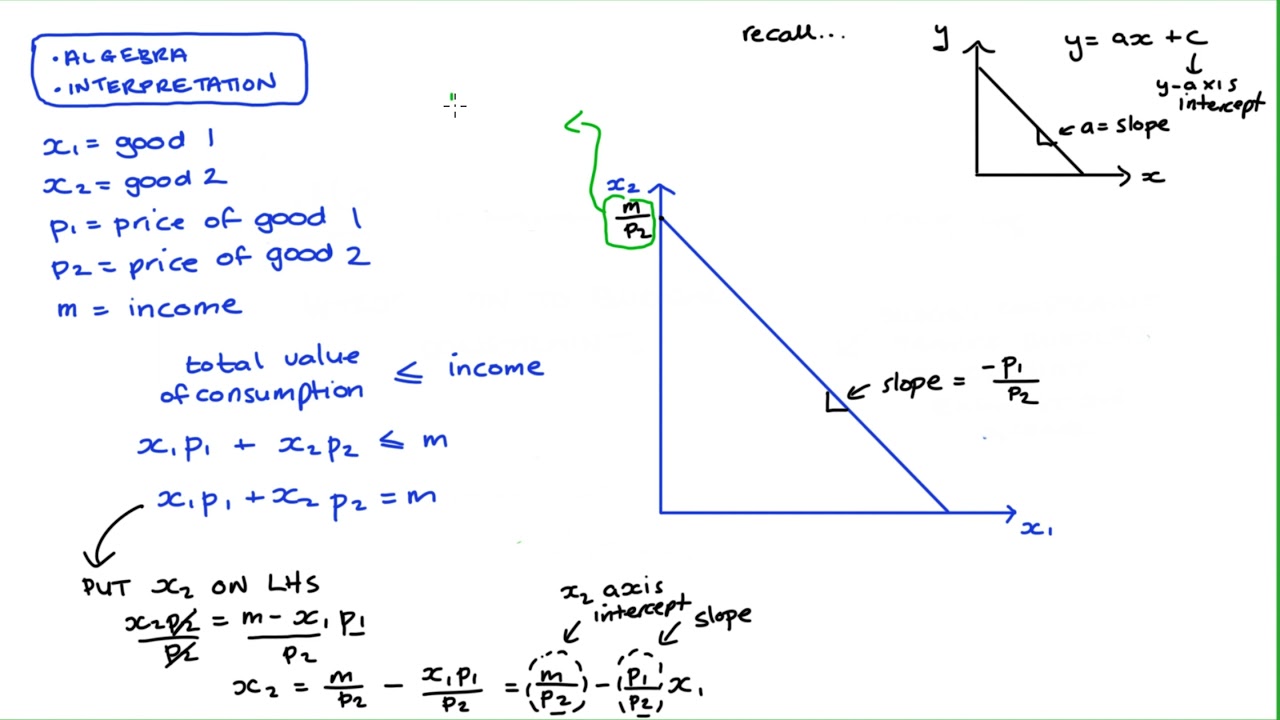 • ALGEBRA
• INTERPRETATION
x₁ = good 1
x₂ = good 2
p₁ = price of good 1
p₂ = price of good 2
m = income
total value
of consumption ≤ income
x₁p₁ + x₂p₂ ≤ m
x₁p₁ + x₂p₂ = m
PUT x₂ ON LHS
x₂p₂/p₂ = m - x₁p₁/p₂
x₂ = m/p₂ - x₁p₁/p₂ = m/p₂ - p₁/p₂ x₁
x₂ axis
intercept
slope
recall...
y
y = ax + c
y-axis
intercept
a = slope
x
x₂
m/p₂
slope = -p₁/p₂
x₁